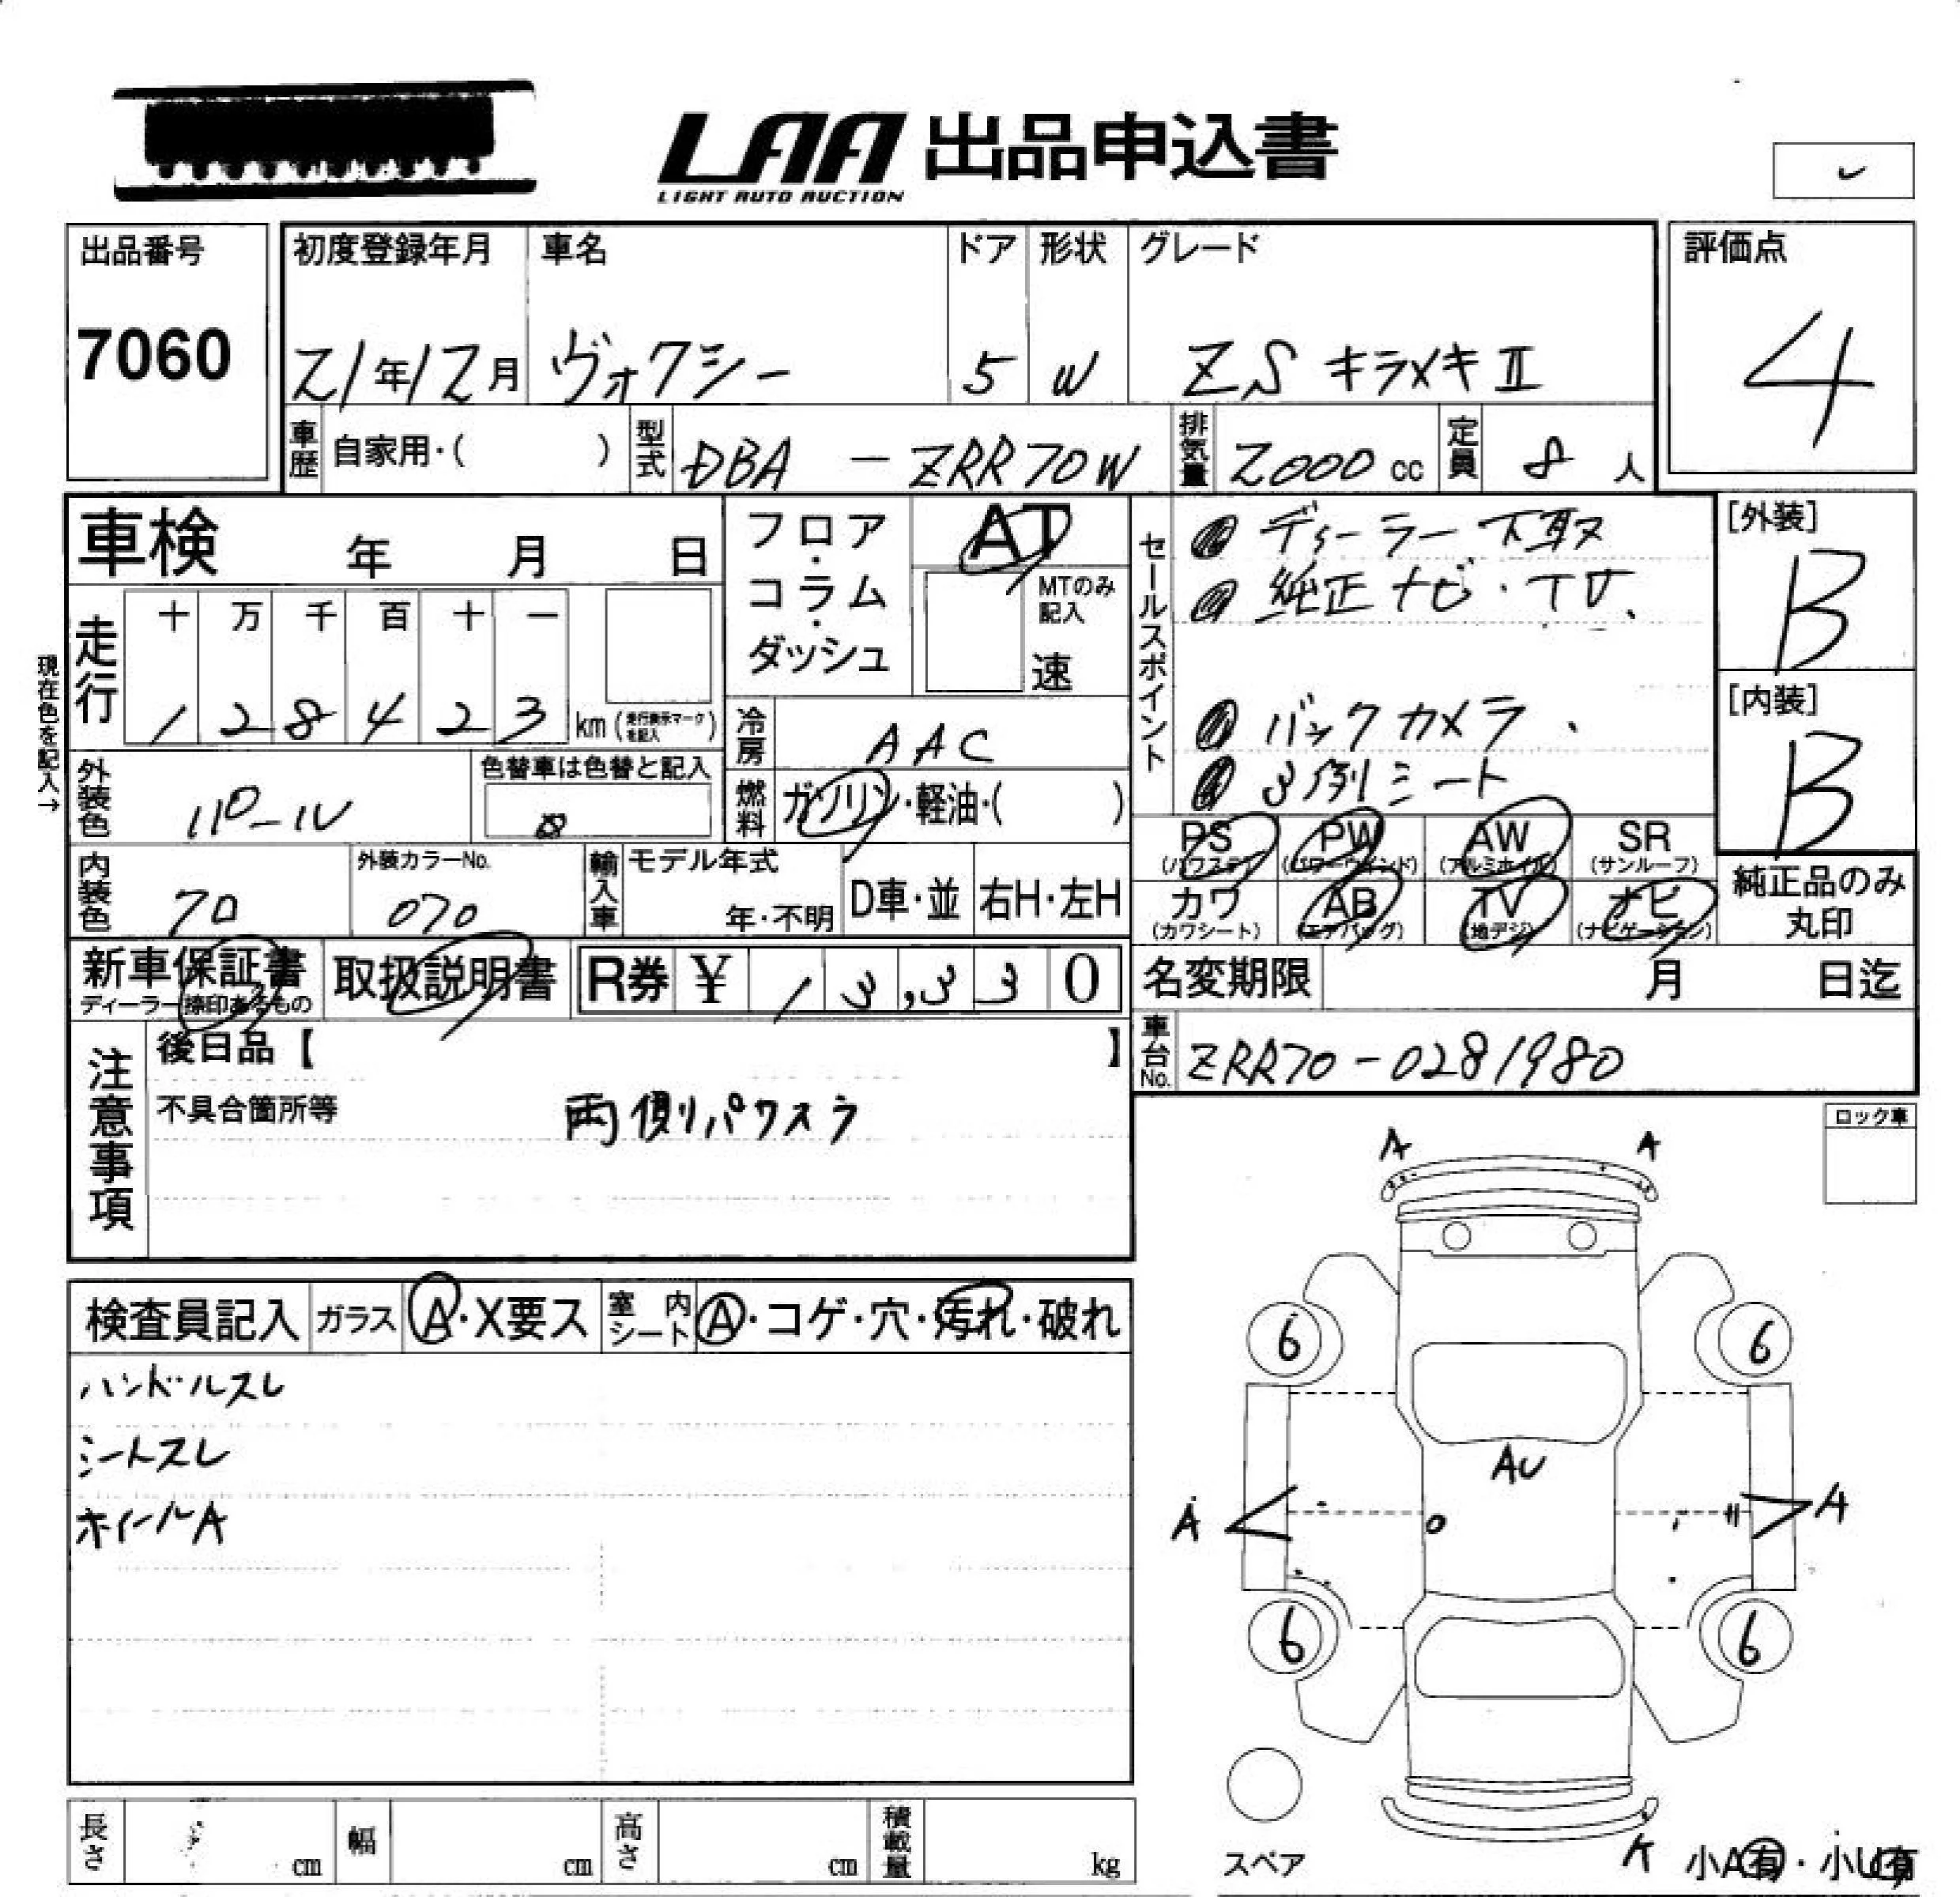 LAA 出品申込書
LIGHT AUTO AUCTION
出品番号
7060
初度登録年月 車名 ドア 形状 グレード
21年12月 ヴォクシー 5 W ZS キラメキⅡ
評価点
4
車歴 自家用・( ) 型式 DBA - ZRR70W 排気量 2000 cc 定員 8 人
車検 年 月 日
フロア・コラム・ダッシュ
AT
MTのみ記入
速
セールスポイント
ディーラー下取
純正ナビ・TV.
バックカメラ.
3列シート
[外装]
B
[内装]
B
現在色を記入→
走行
十 万 千 百 十 一
1 2 8 4 2 3 km (走行表示マークを記入)
冷房 AAC
外装色 パールⅣ
色替車は色替と記入
燃料 ガソリン・軽油・( )
PS (パワステ) PW (パワーウィンド) AW (アルミホイル) SR (サンルーフ)
カワ (カワシート) AB (エアバッグ) TV (地デジ) ナビ (ナビゲーション)
純正品のみ丸印
内装色 クロ
外装カラーNo.
070
輸入車 モデル年式
年・不明
D車・並 右H・左H
新車保証書
ディーラー捺印あるもの
取扱説明書
R券 ¥ 1 3,3 3 0
名変期限 月 日迄
車台No. ZRR70-0281980
注意事項
後日品【 】
不具合箇所等
両側パワスラ
ロック車
検査員記入 ガラス A・X要ス 室内シート A・コゲ・穴・汚れ・破れ
ハンドルスレ
シートスレ
ホイールA
A A
6 6
AU
A A
6 6
スペア
小A有・小U有
長さ cm 幅 cm 高さ cm 積載量 kg